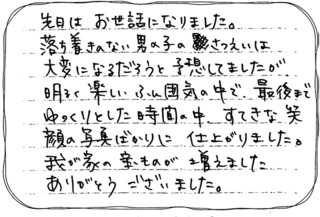 先日は お世話になりました。
落ち着きのない男の子の さつえいは
大変になるだろうと予想してましたが
明るく楽しいふん囲気の中で、最後まで
ゆっくりとした時間の中、すてきな笑
顔の写真ばかりに 仕上がりました。
我が家の宝ものが 増えました
ありがとう ございました。